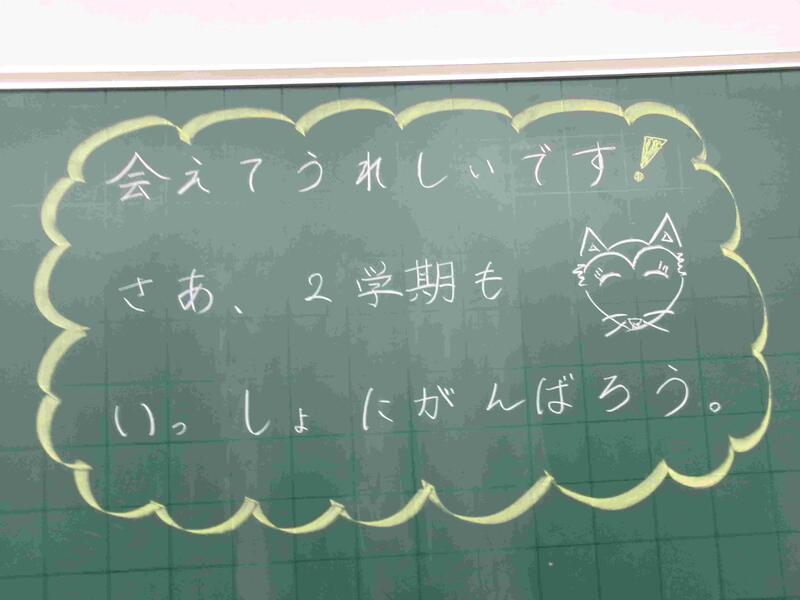 会えてうれしいです!
さあ、2学期も
いっしょにがんばろう。